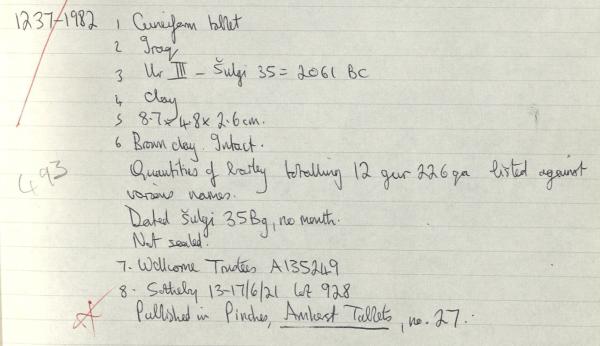 1237-1982 1 Cuneiform tablet
2 Iraq
3 Ur III - Šulgi 35 = 2061 BC
4 clay
5 8.7 x 4.8 x 2.6 cm.
6 Brown clay. Intact.
Quantities of barley totalling 12 gur 226 qa listed against
various names.
Dated Šulgi 35 Bg, no month.
Not sealed.
7. Wellcome Trustees A135249
8. Sotheby 13-17/6/21 lot 928
Published in Pinches, Amherst Tablets, no. 27.
493